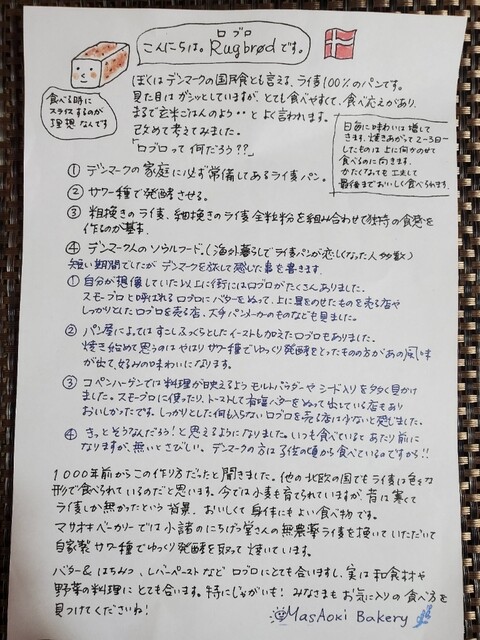 ロブロ
こんにちは。Rugbrødです。
食べる時に
スライスするのが
理想なんです
ぼくはデンマークの国民食とも言える、ライ麦100%のパンです。
見た目はガシッとしていますが、とても食べやすくて、食べ応えがあり、
まるで玄米ごはんのよう・・とよく言われます。
改めて考えてみました。
「ロブロって何だろう??」
日毎に味わいは増して
きます。焼きあがって2~3日
したものは上に何かのせて
食べるのに向きます。
かたくなっても工夫して
最後までおいしく食べられます。
① デンマークの家庭に必ず常備してあるライ麦パン。
② サワー種で発酵させる。
③ 粗挽きのライ麦、細挽きのライ麦全粒粉を組み合わせて独特の食感を
作るのが基本。
④ デンマーク人のソウルフード。(海外暮らしでライ麦パンが恋しくなった人多数)
短い期間でしたがデンマークを旅して感じた事を書きます。
① 自分が想像していた以上に街にはロブロがたくさんありました。
スモーブロと呼ばれるロブロにバターをぬって、上に具をのせたものを売る店や
しっかりとしたロブロを売る店、大手パンメーカーのものなども見ました。
② パン屋によってはすこしふっくらとしたイーストも加えたロブロもありました。
焼き始めて思うのはやはりサワー種でゆっくり発酵をとったものの方があの風味
が出て、好みの味わいになります。
③ コペンハーゲンでは料理が映えるようモルトパウダーやシード入りを多く見かけ
ました。スモーブロに使ったり、トーストして有塩バターをぬって出している店もあり
おいしかったです。しっかりとした何も入らないロブロを売る店は少ないと感じました。
④ きっとそうなんだろう!と思えるようになりました。いつも食べているとあたり前に
なりますが、無いとさびしい。デンマークの方は子供の頃から食べているのですから!!
1000年前からこの作り方だったと聞きました。他の北欧の国でもライ麦は色々な
形で食べられているのだと思います。今では小麦も育てられていますが、昔は寒くて
ライ麦しか無かったという背景。おいしくて身体にもよい食べ物です。
マサアオキベーカリーでは小諸のにちげつ堂さんの無農薬ライ麦を挽いていただいて
自家製サワー種でゆっくり発酵を取って焼いています。
バター&はちみつ、レバーペーストなどロブロにとても合いますし、実は和食材や
野菜の料理にとても合います。特にじゃがいも!みなさまもお気に入りの食べ方を
見つけてくださいね!
MasAoki Bakery